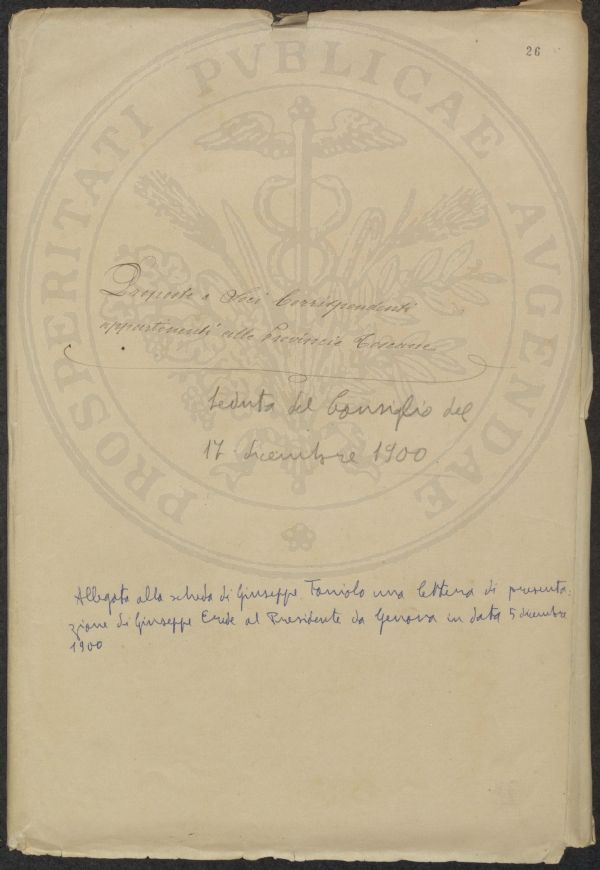 26
PROSPERITATI PVBLICAE AVGENDAE
Proposte a Soci Corrispondenti
appartenenti alle Provincie Toscane
Seduta del Consiglio del
17 dicembre 1900
Allegata alla scheda di Giuseppe Toniolo una lettera di presenta-
zione di Giuseppe Erede al Presidente da Genova in data 5 dicembre
1900